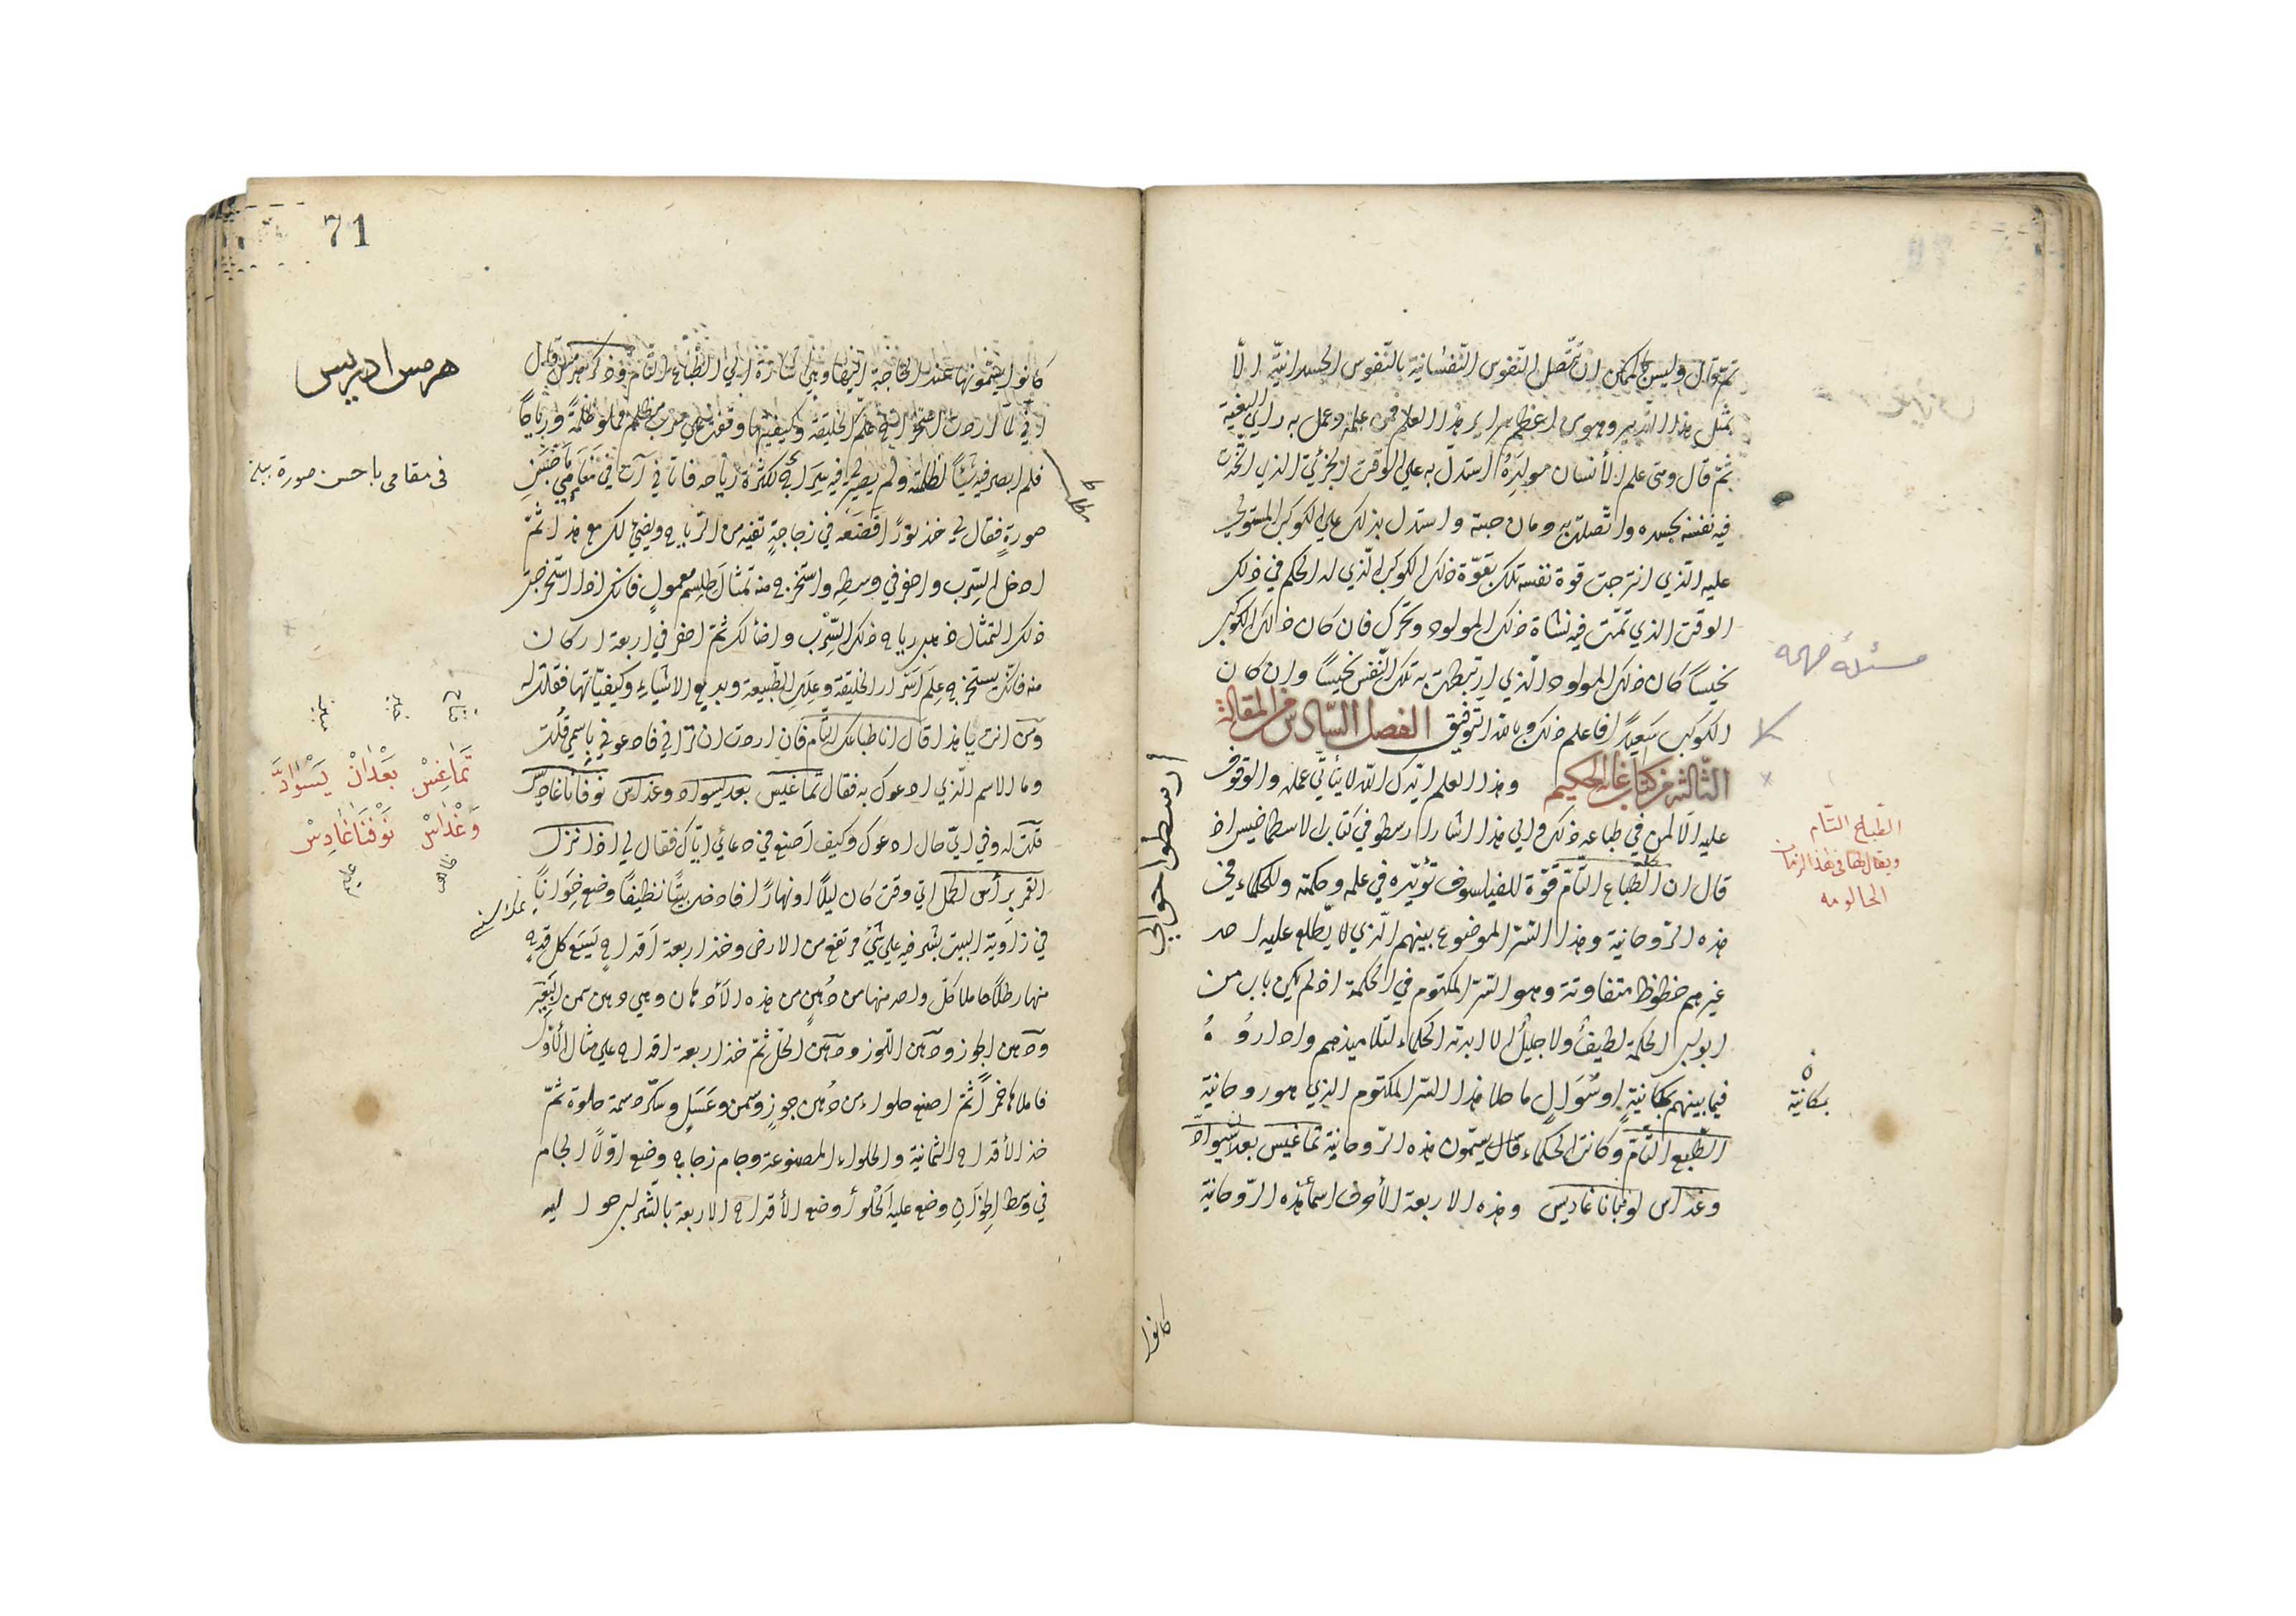 ثم قال وليس يمكن ان تتصل النفوس النفسانية بالنفوس الجسدانية الا
بمثل هذا التدبير وهو من اعظم سراير هذا العلم فمن علمه وعمل به راى البغية
ثم قال ومتى علم الأنسان مولده استدل به على الوقت الجزئي الذي اتحدت
فيه نفسه بجسده واتصلت به ومازجته واستدل بذلك على الكوكب المستولي
عليه الذي امتزجت قوة نفسه تلك بقوة ذلك الكوكب الذي له الحكم في ذلك
الوقت الذي تمت فيه نشاة ذلك المولود وتحرك فان كان ذلك الكوكب
نحيسا كان ذلك المولود الذي ارتبطت به تلك النفس نحيسا وان كان
الكوكب سعيدا فاعلم ذلك وبالله التوفيق الفصل السادس من المقالة
الثالثة من كتاب غاية الحكيم وهذا العلم ايدك الله لا يتأتى عمله والوقوف
عليه الا لمن في طباعه ذلك والى هذا اشار ارسطو في كتاب الاسطماخيس اذ
قال ان الطباع التام قوة للفيلسوف تؤيده في علمه وحكمته وللحكماء في
هذه الروحانية وهذا السر الموضوع بينهم الذي لا يطلع عليه احد
غيرهم حظوظ متفاوتة وهو السر المكتوم في الحكمة اذ لم يكن باب من
ابواب الحكمة لطيف ولا جليل الا ابدته الحكماء لتلاميذهم واداروه
فيما بينهم بمكانية او سؤال ما خلا هذا السر المكتوم الذي هو روحانية
الطبع التام وكانت الحكماء قال يسمون هذه الروحانية تماغيس بعد يسواد
وغداس نوفاناغاديس وهذه الاربعة الأحرف اسماء هذه الروحانية
مسئلة مهمة
الطباع التام
ويقال لها في هذا الزمان
الحالومه
بمكانية
ارسطوا حوالي
كانوا
71
كانوا يسمونها عند الحاجة اليها وهي اشارة الى الطباع التام وذكر هرمس قال
اني لما اردت استخراج علم الخليقة وكيفيتها وقفت على سرب مظلم مملو ظلمة ورياحا
فلم ابصر فيه شيئا لظلمته ولم يضئ لي فيه سراج لكثرة رياحه فاتاني آت في منامي باحسن
صورة فقال لي خذ نورا فضعه في زجاجة تقيه من الرياح ويضئ لك مع هذا ثم
ادخل السرب واحفر في وسطه واستخرج منه تمثال طلسم معمول فانك اذا استخرجت
ذلك التمثال ذهبت رياح ذلك السرب واضأ لك ثم احفر في اربعة اركان
منه فانك تستخرج علم اسرار الخليقة وعلل الطبيعة وبديع الاشياء وكيفياتها فقلت له
ومن انت يا هذا قال انا طباعك التام فان اردت ان تراني فادعوني باسمي قلت
وما الاسم الذي ادعوك به فقال تماغيس بعد يسواد وغداس نوفاناغاديس
قلت له وفي اي حال ادعوك وكيف اصنع في دعائي اياك فقال لي اذا نزل
القمر برأس الحمل اي وقت كان ليلا او نهارا فادخل بيتا نظيفا وضع خوانا
في زاوية البيت بشرقيه على شئ مرتفع من الارض وخذ اربعة اقداح يسع كل قدح
منها رطلا فاملا كل واحد منها من دهن من هذه الأدهان وهي دهن سمن البقر
ودهن الجوز ودهن اللوز ودهن الخل ثم خذ اربعة اقداح على مثال الأول
فاملاها خمرا ثم اصنع حلواء من دهن جوز وسمن وعسل وسكر دسمة حلوة ثم
خذ الأقداح الثمانية والحلواء المصنوعة وجام زجاج وضع اولا الجام
في وسط الخوان وضع عليه الحلوا وضع الأقداح الاربعة بالشراب حواليه
هرمس ادريس
في مقامي باحسن صورة
تماغس بعدان يسواد
وغداس نوفناغادس